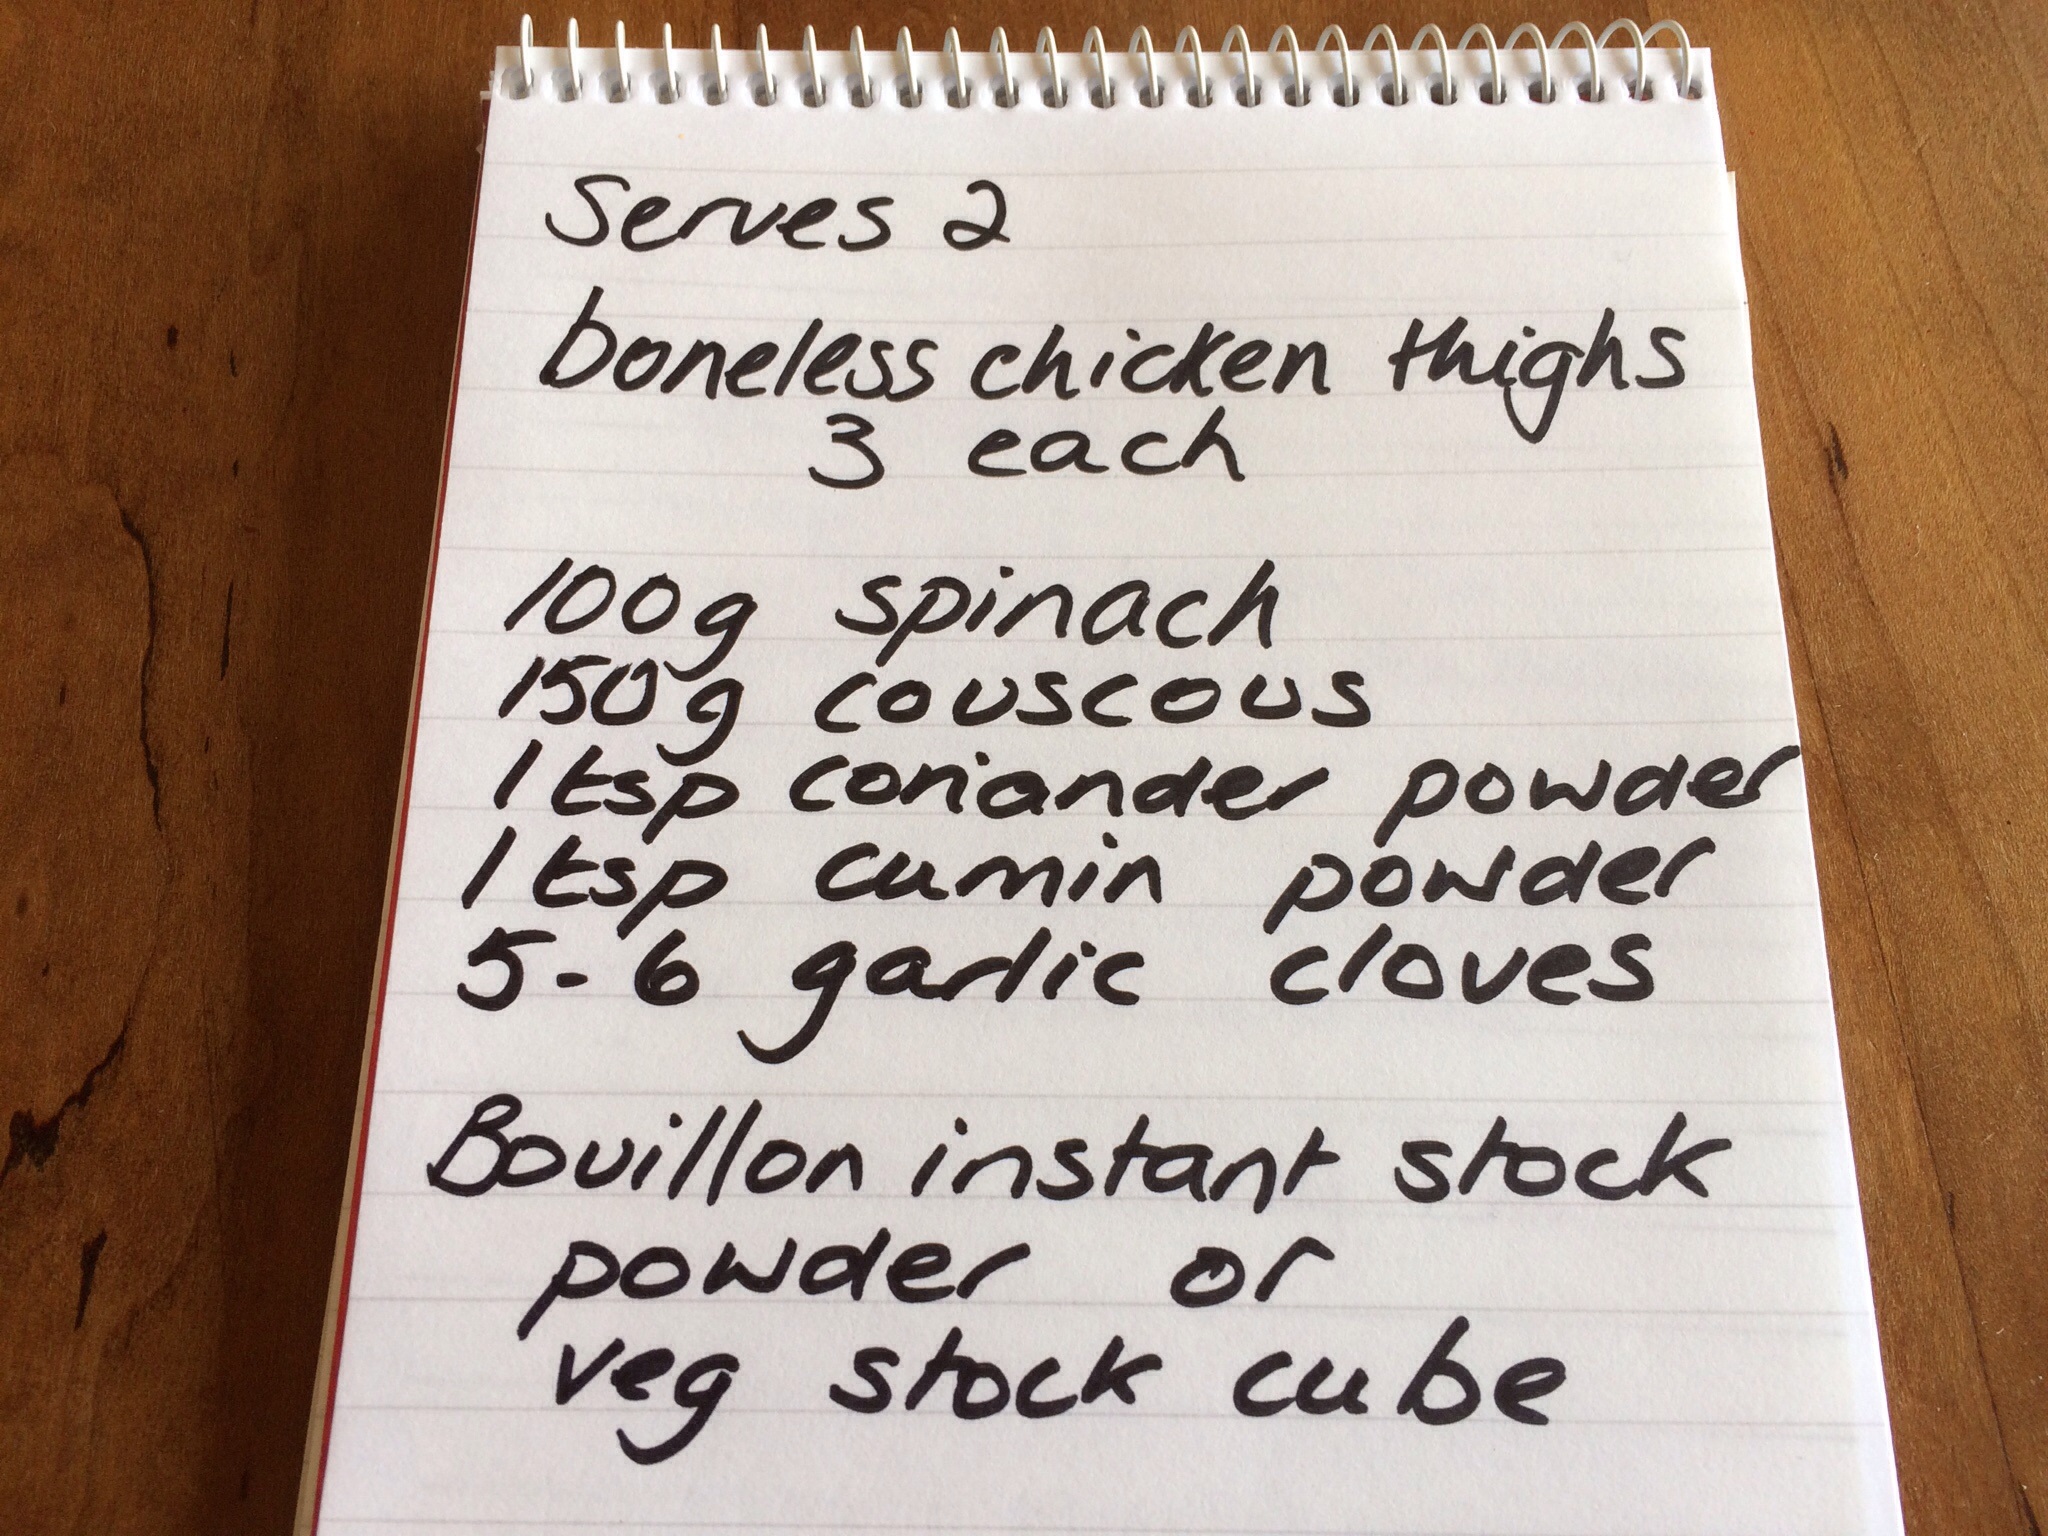 Serves 2
boneless chicken thighs
3 each
100g spinach
150g couscous
1 tsp coriander powder
1 tsp cumin powder
5-6 garlic cloves
Bouillon instant stock
powder or
veg stock cube